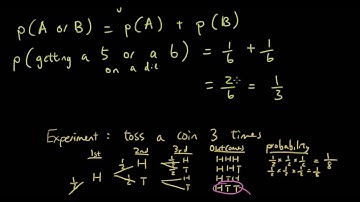 p(A or B) = p(A) + p(B)
p(getting a 5 or a 6) = 1/6 + 1/6
on a die
= 2/6 = 1/3
Experiment : toss a coin 3 times
1st 2nd 3rd Outcomes probability
1/2 H 1/2 H 1/2 H HHH 1/2 × 1/2 × 1/2 = 1/8
1/2 T HHT 1/2 × 1/2 × 1/2 = 1/8
1/2 T H HTH
T HTT